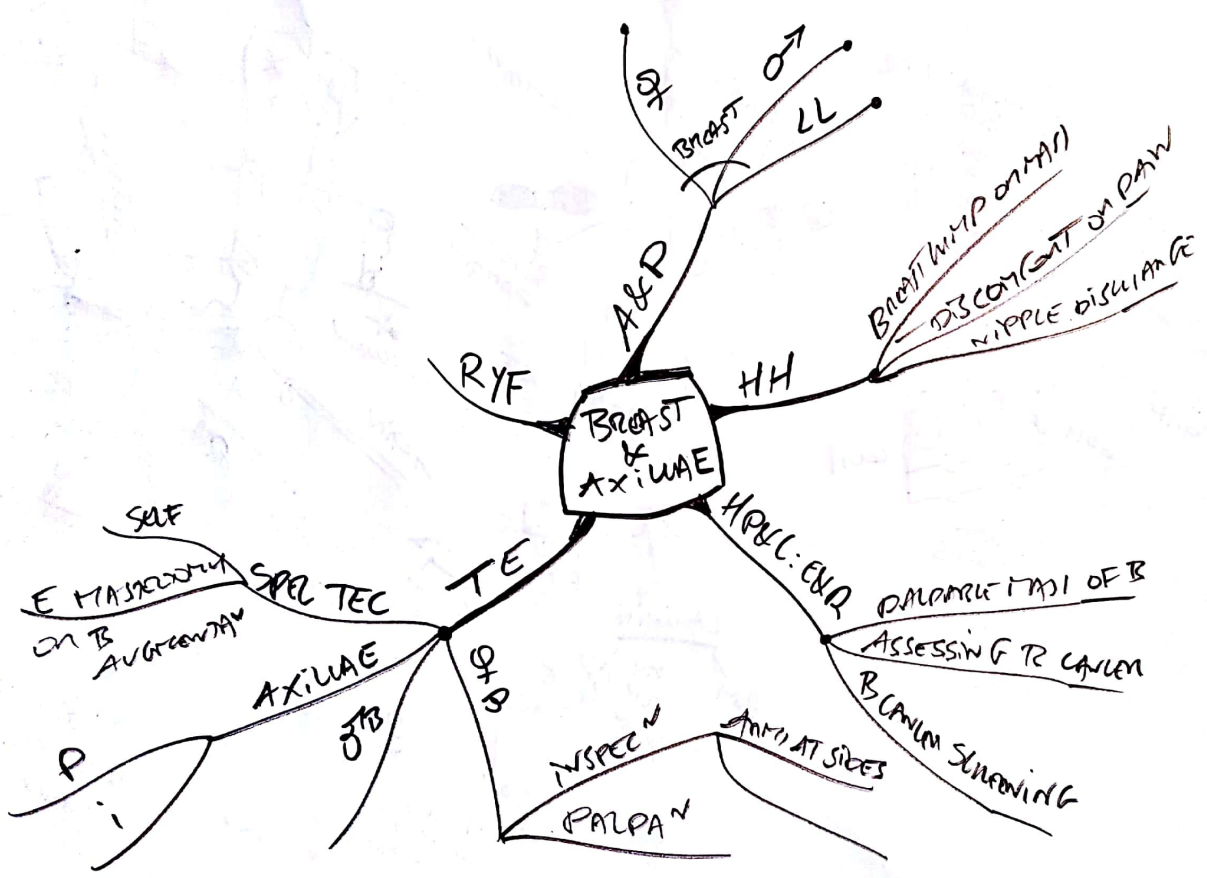 ♀
BREAST
♂
LL
A&P
BREAST LUMP OR MASS
DISCOMFORT OR PAIN
NIPPLE DISCHARGE
HH
RYF
BREAST
&
AXILLAE
HP&C: E&R
PALPABLE MASS OF B
ASSESSING R CANCER
B CANCER SCREENING
TE
SPEC TEC
SELF
E MASTECTOMY
OR B
AUGMENTAᴺ
AXILLAE
P
i
♂B
♀
B
INSPECᴺ
ARMS AT SIDES
PALPAᴺ